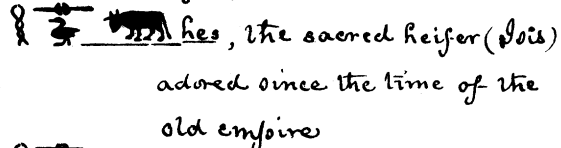 𓎛 𓊃 𓅭 𓃒 hes, the sacred heifer (Isis)
adored since the time of the
old empire